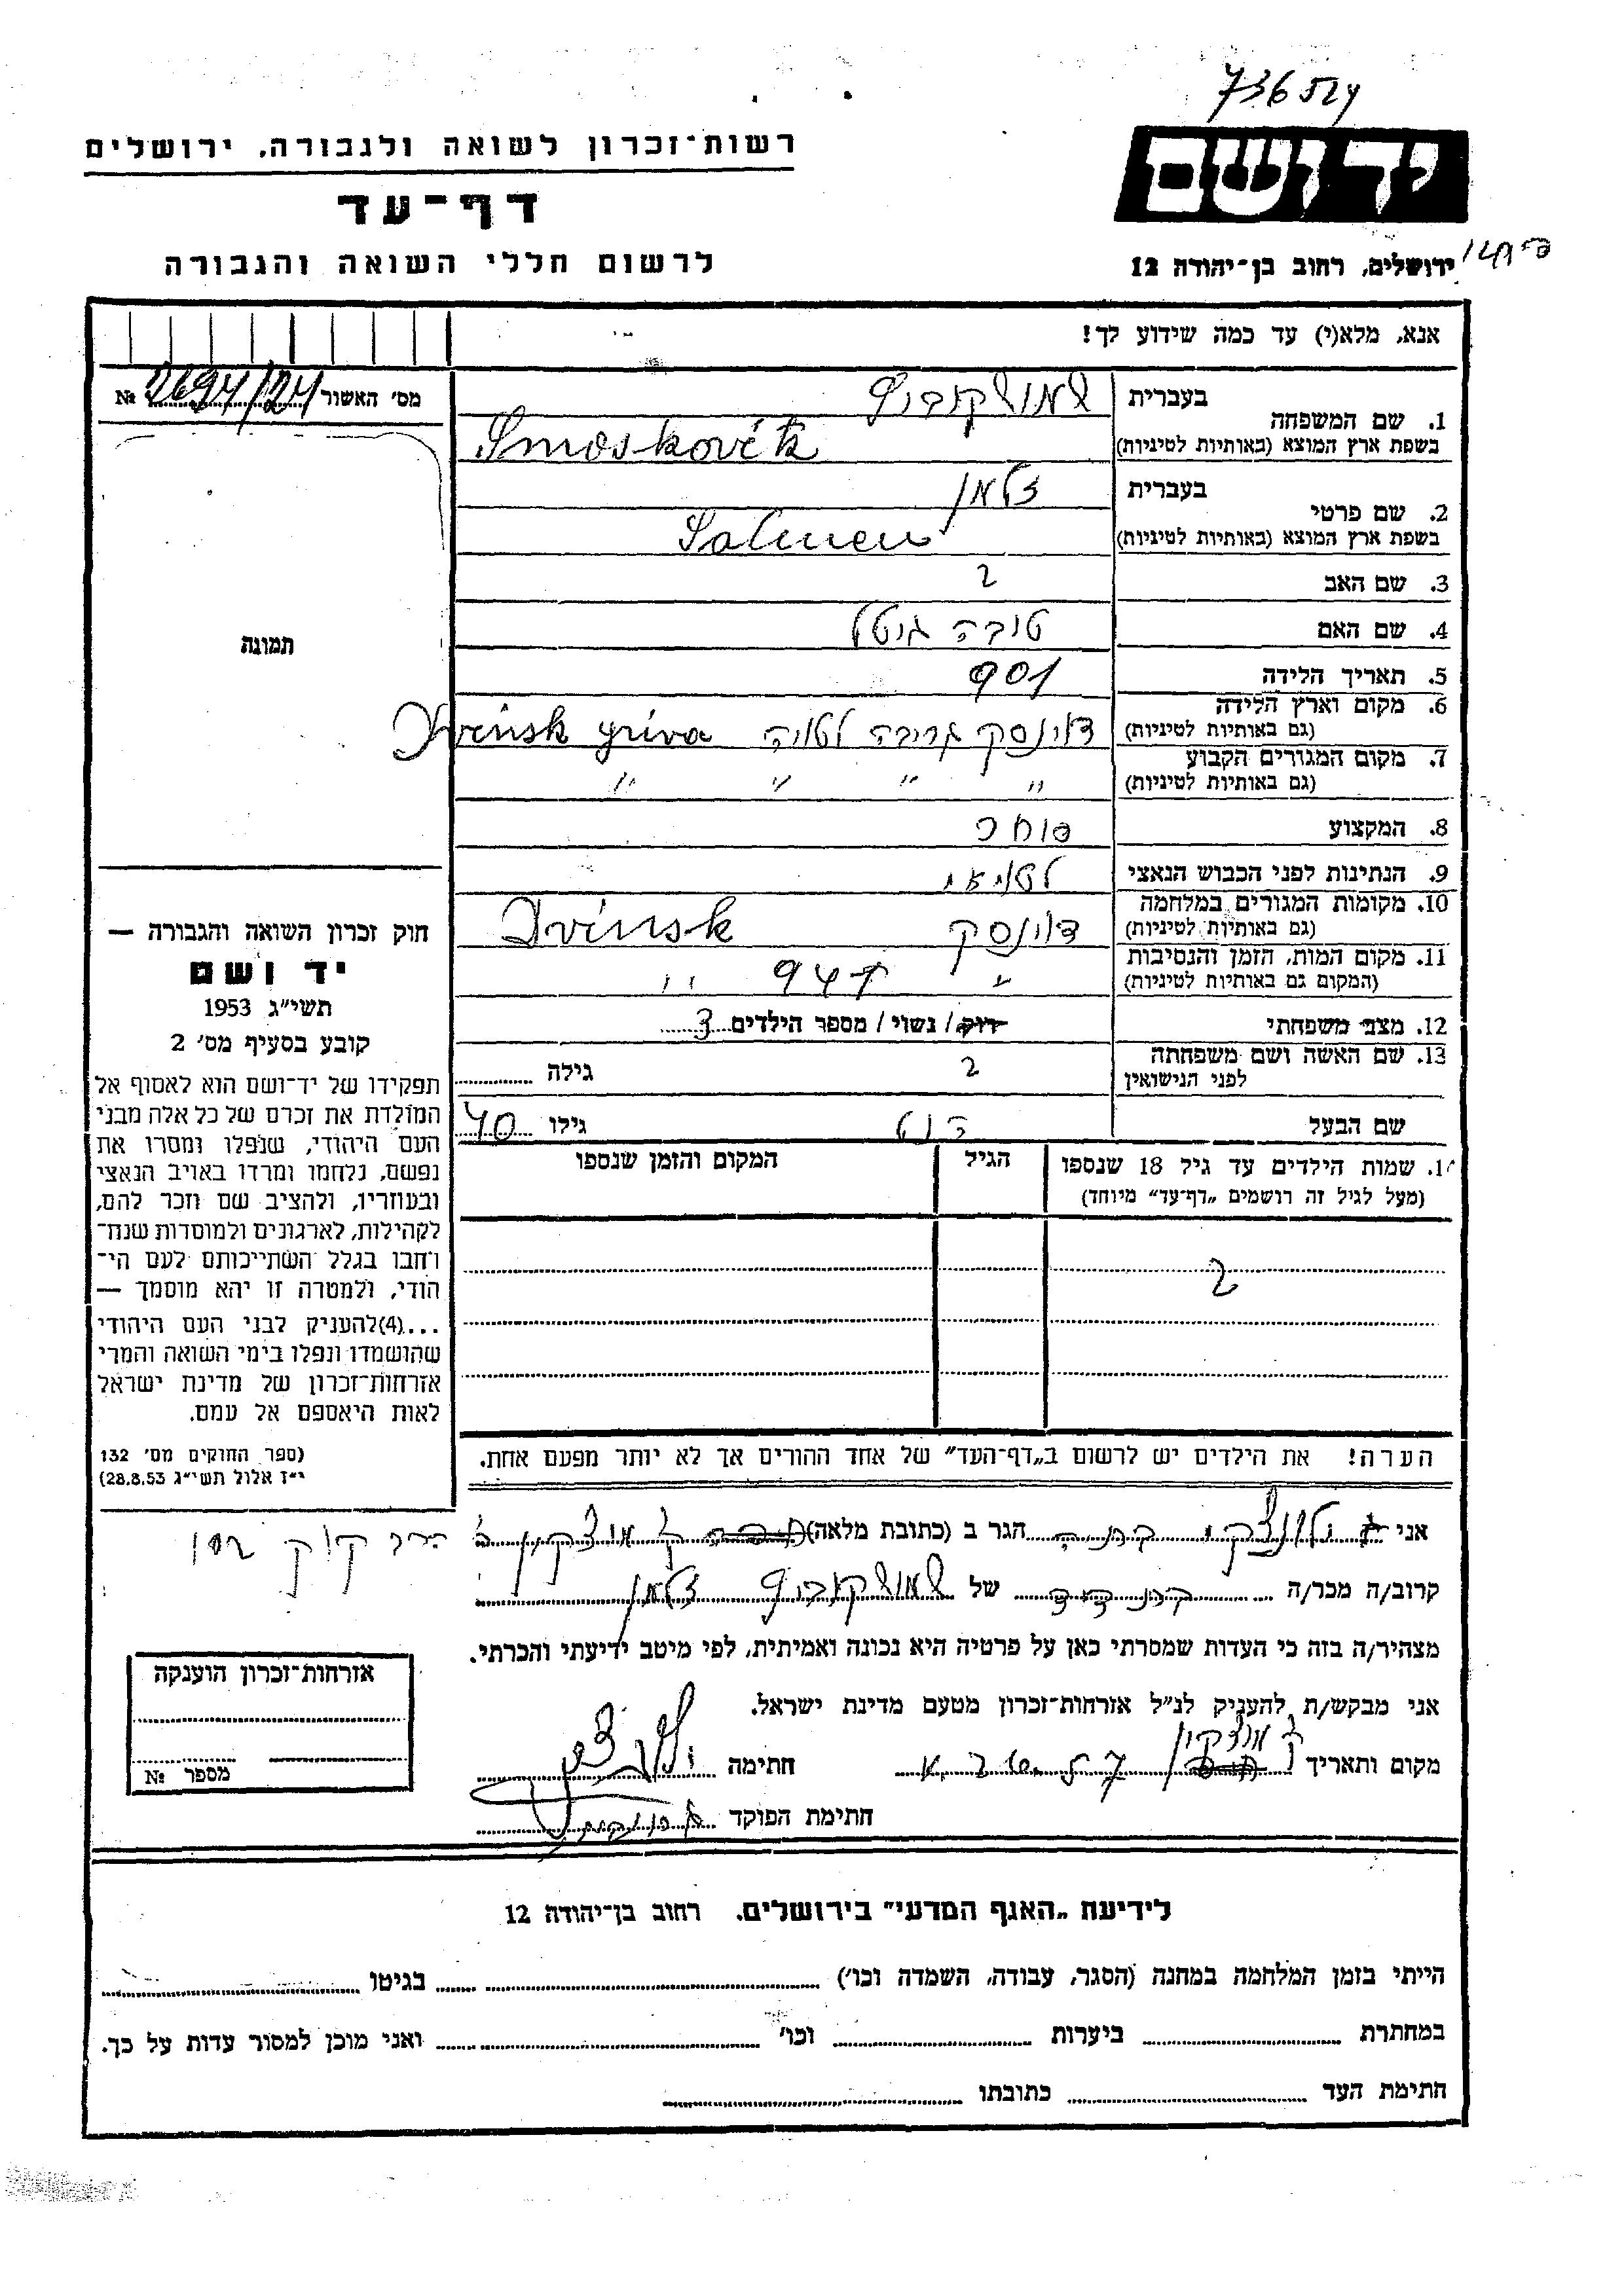 736524
רשות-זכרון לשואה ולגבורה, ירושלים
דף-עד
לרשום חללי השואה והגבורה
יד ושם
ירושלים, רחוב בן-יהודה 12
אנא, מלא(י) עד כמה שידוע לך!
מס׳ האשור 2694/24 №
תמונה
1. שם המשפחה
בעברית
בשפת ארץ המוצא (באותיות לטיניות) Smoskovitz
2. שם פרטי
בעברית זלמן
בשפת ארץ המוצא (באותיות לטיניות) Salmen
3. שם האב ?
4. שם האם טובה גיטל
5. תאריך הלידה 901
6. מקום וארץ הלידה
(גם באותיות לטיניות) דוינסק גריבה לטויה Dvinsk griva
7. מקום המגורים הקבוע
(גם באותיות לטיניות) " " " "
8. המקצוע סוחר
9. הנתינות לפני הכבוש הנאצי
10. מקומות המגורים במלחמה
(גם באותיות לטיניות) דוינסק Dvinsk
11. מקום המות, הזמן והנסיבות
(המקום גם באותיות לטיניות) " "
12. מצב משפחתי רוק/ נשוי/ מספר הילדים 3
13. שם האשה ושם משפחתה
לפני הנישואין ? גילה
שם הבעל גילו 40
14. שמות הילדים עד גיל 18 שנספו
(מעל לגיל זה רושמים „דף-עד” מיוחד)
הגיל
המקום והזמן שנספו
?
הערה! את הילדים יש לרשום ב„דף-העד” של אחד ההורים אך לא יותר מפעם אחת.
חוק זכרון השואה והגבורה —
יד ושם
תשי״ג 1953
קובע בסעיף מס׳ 2
תפקידו של יד-ושם הוא לאסוף אל
המולדת את זכרם של כל אלה מבני
העם היהודי, שנפלו ומסרו את
נפשם, נלחמו ומרדו באויב הנאצי
ובעוזריו, ולהציב שם וזכר להם,
לקהילות, לארגונים ולמוסדות שנח-
רחבו בגלל השתייכותם לעם הי-
הודי, ולמטרה זו יהא מוסמך —
...(4)להעניק לבני העם היהודי
שהושמדו ונפלו בימי השואה והמרי
אזרחות-זכרון של מדינת ישראל
לאות היאספם אל עמם.
(ספר החוקים מס׳ 132
י״ז אלול תשי״ג 28.8.53)
אני הגר ב (כתובת מלאה) הרב קוק
קרוב/ה מכר/ה של זלמן
מצהיר/ה בזה כי העדות שמסרתי כאן על פרטיה היא נכונה ואמיתית, לפי מיטב ידיעתי והכרתי.
אני מבקש/ת להעניק לנ״ל אזרחות-זכרון מטעם מדינת ישראל.
מקום ותאריך חתימה
חתימת הפוקד
אזרחות-זכרון הוענקה
מספר №
לידיעת „האגף המדעי” בירושלים, רחוב בן-יהודה 12
הייתי בזמן המלחמה במחנה (הסגר, עבודה, השמדה וכו׳) בגיטו
במחתרת ביערות וכו׳ ואני מוכן למסור עדות על כך.
חתימת העד כתובתו